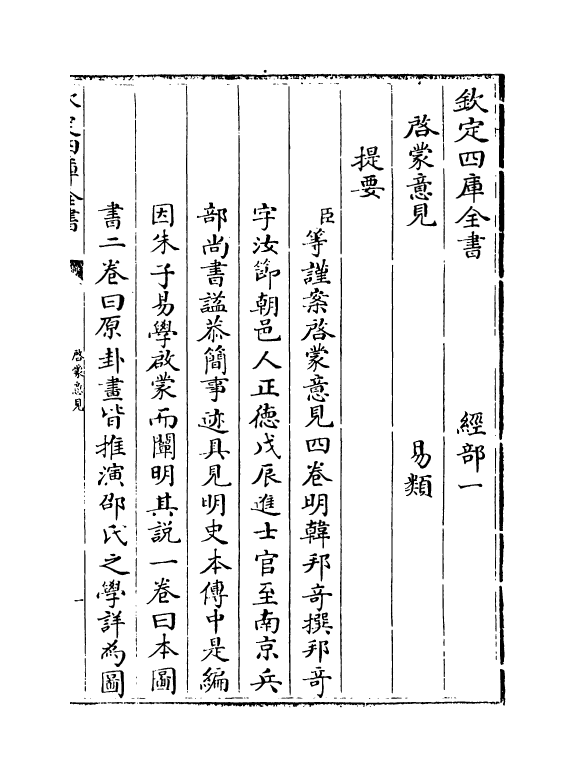 欽定四庫全書　經部一
啓蒙意見　易類
提要
臣等謹案啓蒙意見四卷明韓邦竒撰邦竒
字汝節朝邑人正德戊辰進士官至南京兵
部尚書謚恭簡事迹具見明史本傳中是編
因朱子易學啟蒙而闡明其説一卷曰本圖
書二卷曰原卦畫皆推演邵氏之學詳為圖
欽定四庫全書
啓蒙意見
一